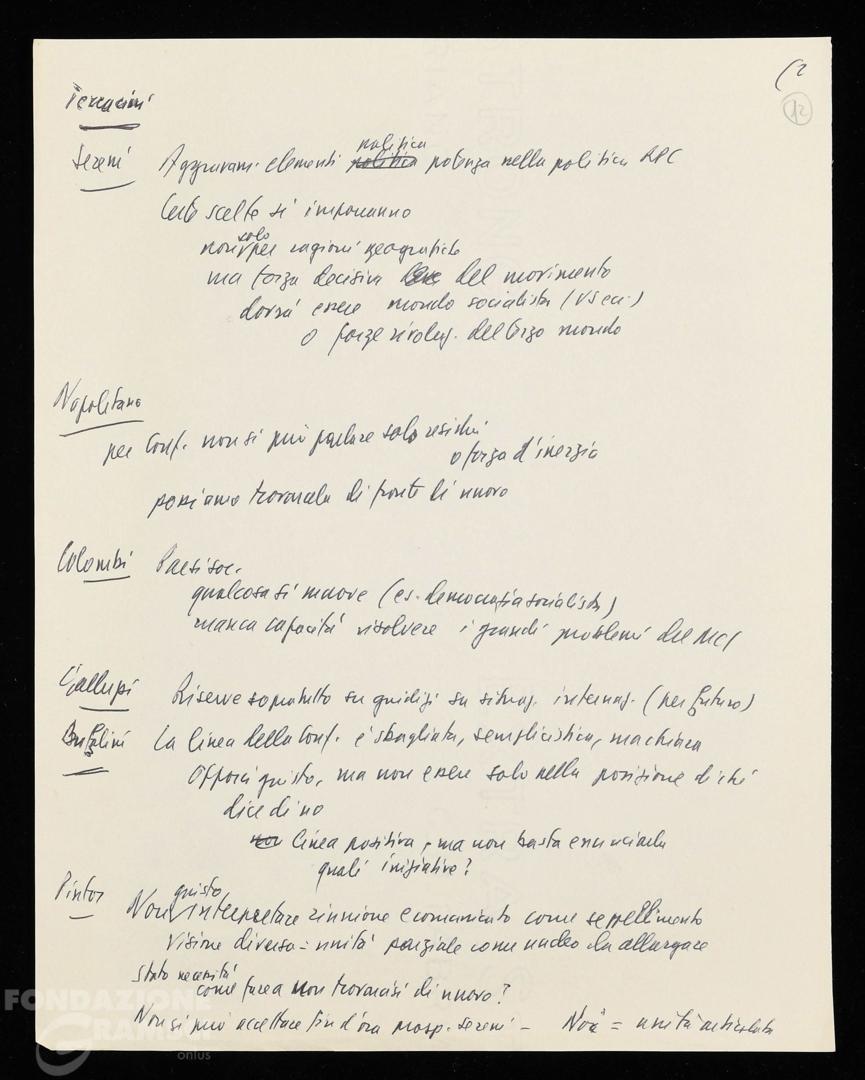 (2
12
Terracini
Sereni Aggravam. elementi politica politica potenza nella politica RPC
Certe scelte si imporranno
non solo per ragioni geografiche
ma forza decisiva del movimento
dovrà essere mondo socialista (US ecc.)
o forze rivoluz. del terzo mondo
Napolitano
per Conf. non si può parlare solo residui
o forza d'inerzia
possiamo trovarcela di fronte di nuovo
Colombi Paesi soc.
qualcosa si muove (es. democrazia socialista)
manca capacità risolvere i grandi problemi del MCI
Galluzzi Riserve sopratutto su giudizi su situaz. internaz. (per futuro)
Bufalini La linea della Conf. è sbagliata, semplicistica,
opporsi giusto, ma non essere solo nella posizione di chi
dice di no
non linea positiva, ma non basta enunciarla
quali iniziative?
Pintor Non giusto interpretare riunione e comunicato come seppellimento
Visione diversa = unità parziale come nucleo da allargare
Stato necessità
come fare a non trovarcisi di nuovo?
Non si può accettare fin d'ora prosp. Sereni - Noi = unità articolata
FONDAZIONE
GRAMSCI
onlus